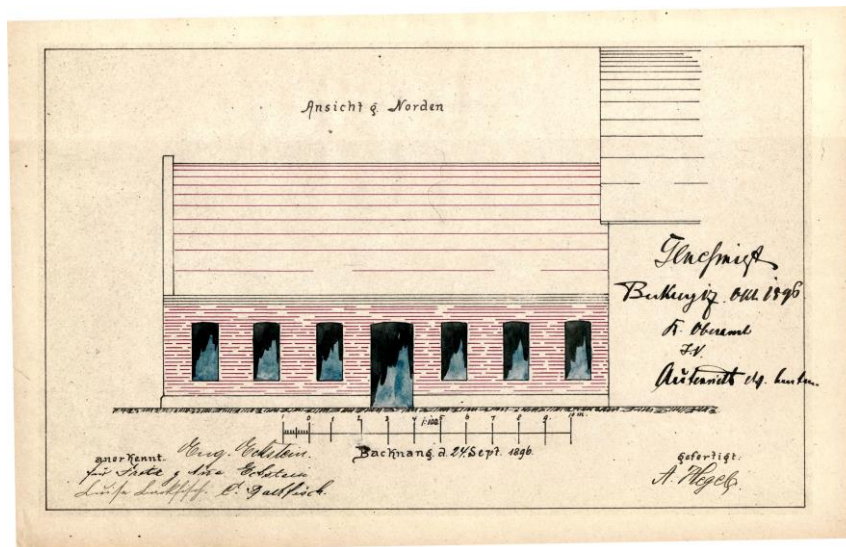 Ansicht g. Norden
Genehmigt
Backnang 17. Okt. 1896
K. Oberamt
J.V.
1 0 1 2 3 4 5 6 7 8 9 10 m.
1:100
Backnang, d. 24 Sept. 1896.
anerkennt. Eug. Eckstein.
für Eckstein
Luise
gefertigt.
A. Hegele